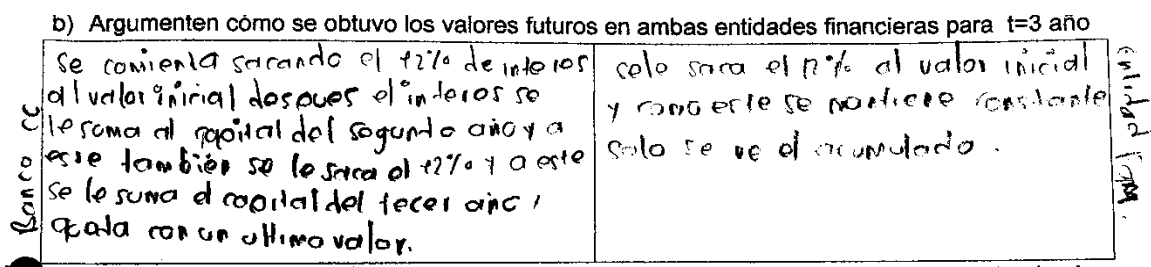 b) Argumenten cómo se obtuvo los valores futuros en ambas entidades financieras para t=3 año
Banco CC
Se comienza sacando el 12% de interes
al valor inicial despues el interes se
le suma al capital del segundo año y a
ese tambien se le saca el 12% y a este
se le suma el capital del tecer año,
queda con un ultimo valor.
solo saca el 12% al valor inicial
y como este se mantiene constante
solo se ve el acumulado.
entidad